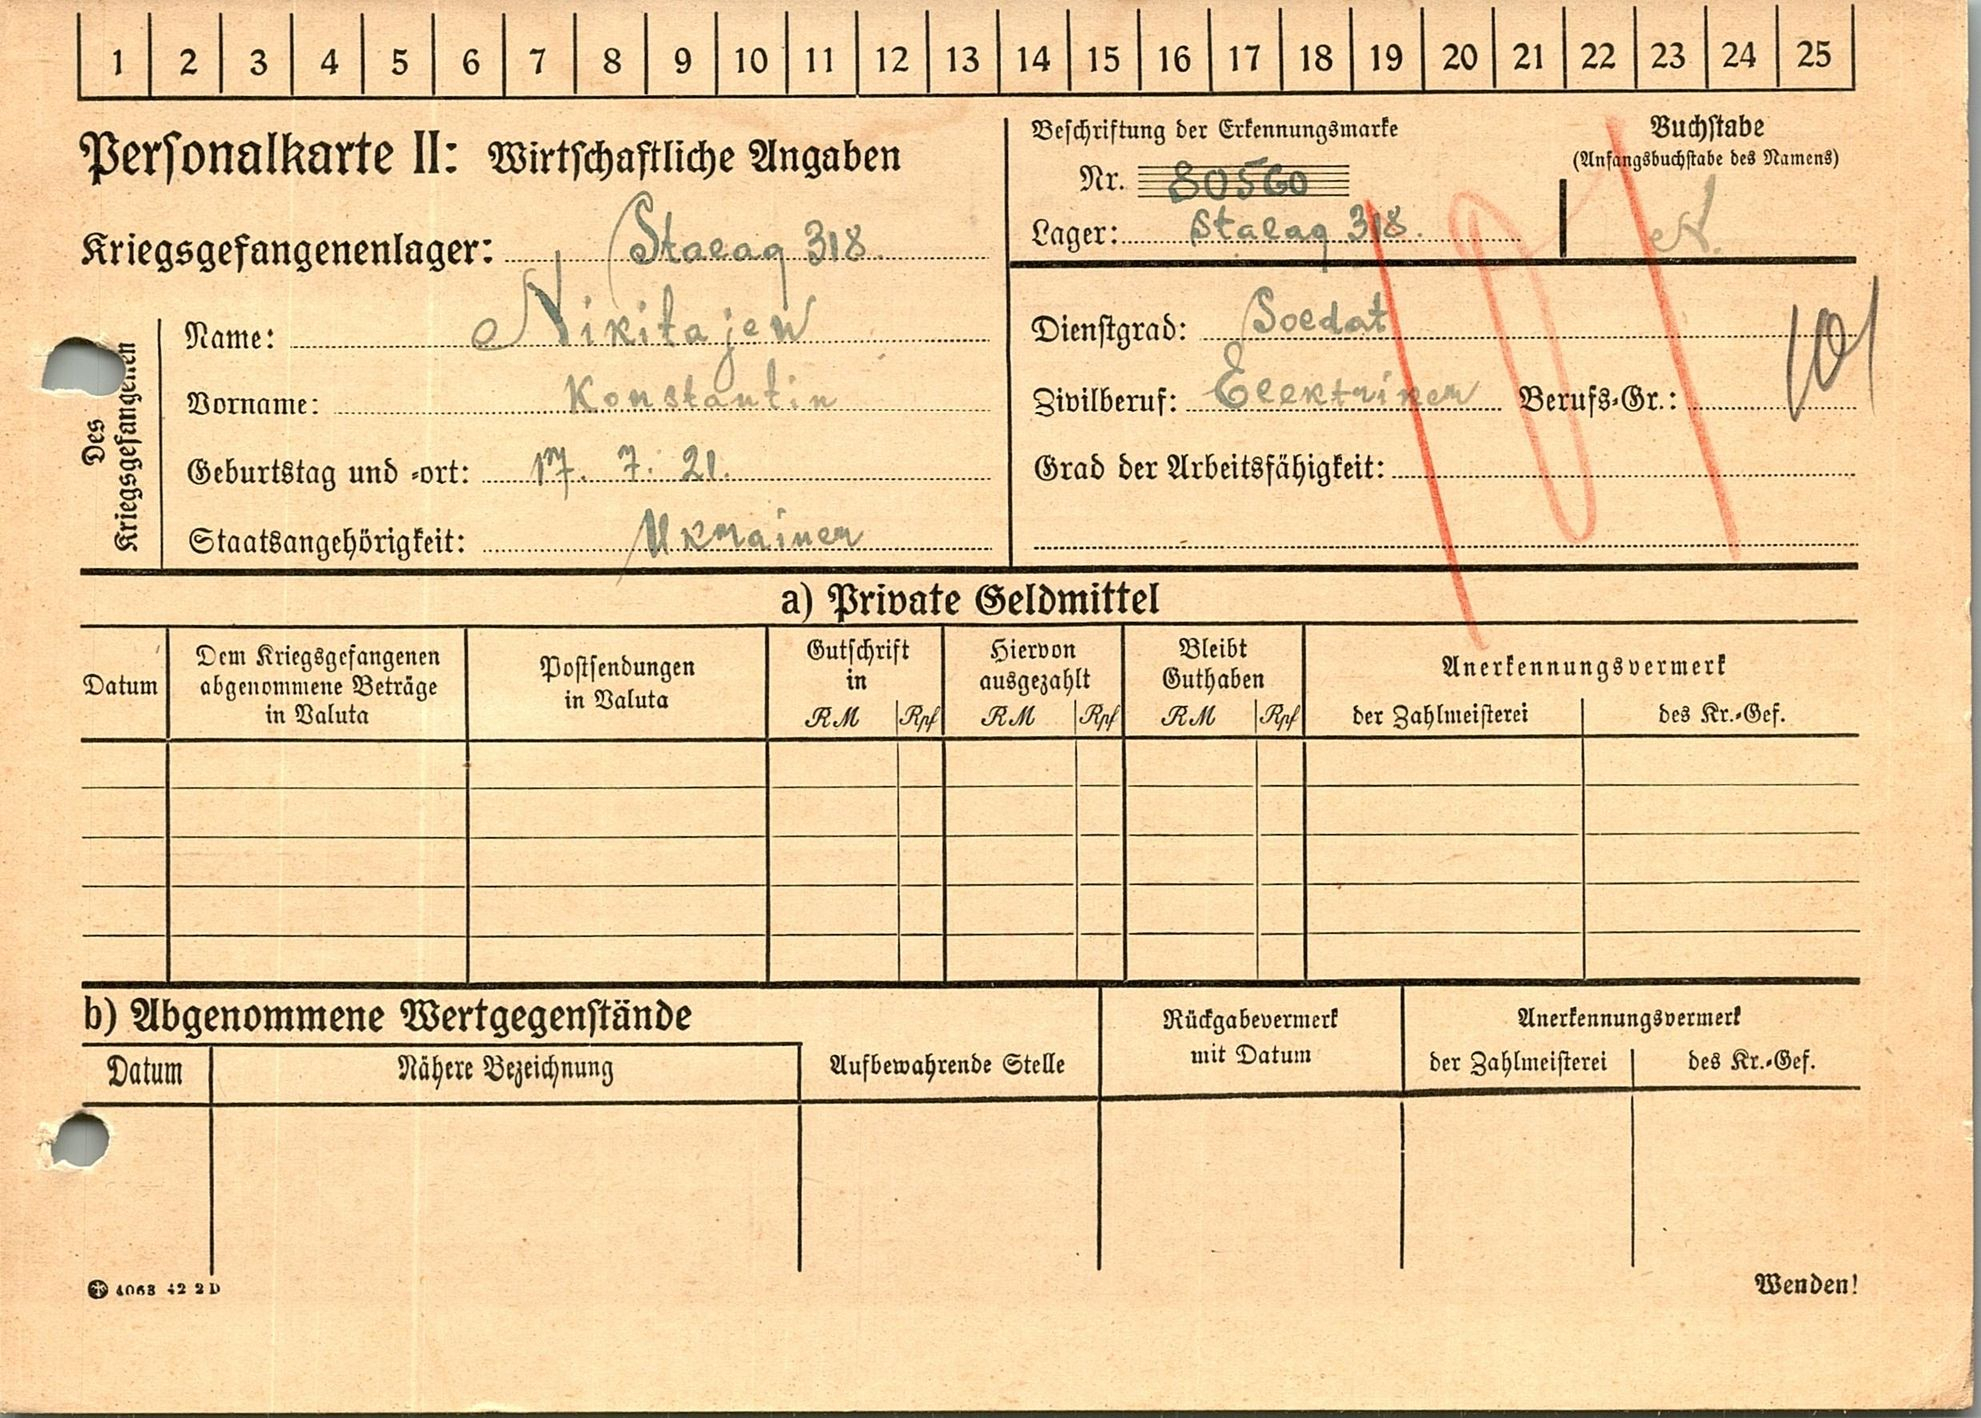 1 2 3 4 5 6 7 8 9 10 11 12 13 14 15 16 17 18 19 20 21 22 23 24 25
Personalkarte II: Wirtschaftliche Angaben
Beschriftung der Erkennungsmarke
Nr. 80560
Lager: Stalag 318.
Buchstabe
(Anfangsbuchstabe des Namens)
N.
Kriegsgefangenenlager: Stalag 318.
Des Kriegsgefangenen
Name: Nikitajew
Vorname: Konstantin
Geburtstag und -ort: 17. 7. 21.
Staatsangehörigkeit: Ukrainer
Dienstgrad: Soldat
Zivilberuf: Elektriker Berufs-Gr.: 101
Grad der Arbeitsfähigkeit:
101
a) Private Geldmittel
Datum
Dem Kriegsgefangenen
abgenommene Beträge
in Valuta
Postsendungen
in Valuta
Gutschrift
in
RM Rpf
Hiervon
ausgezahlt
RM Rpf
Bleibt
Guthaben
RM Rpf
Anerkennungsvermerk
der Zahlmeisterei des Kr.-Gef.
b) Abgenommene Wertgegenstände
Datum Nähere Bezeichnung
Aufbewahrende Stelle
Rückgabevermerk
mit Datum
Anerkennungsvermerk
der Zahlmeisterei des Kr.-Gef.
4063 42 2 D
Wenden!